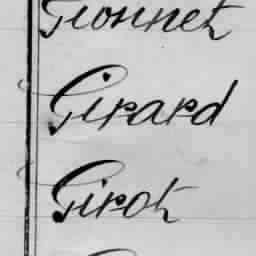 Gionnet
Girard
Girot